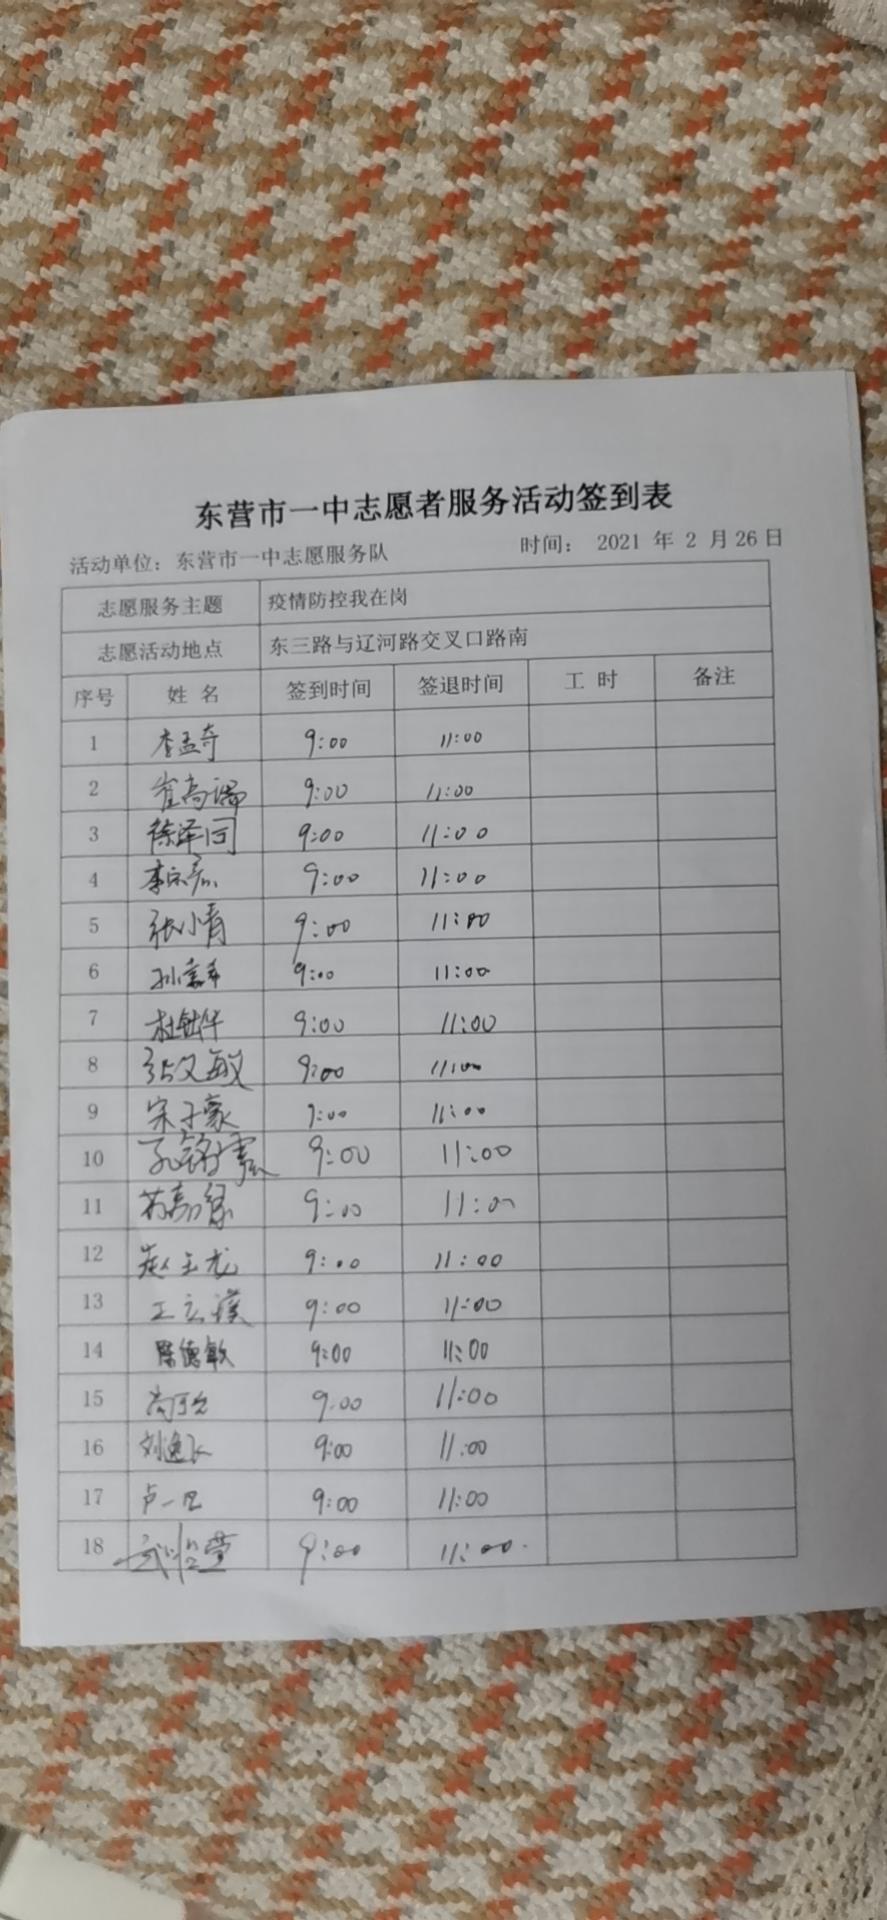 东营市一中志愿者服务活动签到表
活动单位：东营市一中志愿服务队 时间： 2021 年 2 月 26 日
志愿服务主题 疫情防控我在岗
志愿活动地点 东三路与辽河路交叉口路南
序号 姓 名 签到时间 签退时间 工 时 备注
1 李孟奇 9:00 11:00
2 崔尚瑞 9:00 11:00
3 徐泽同 9:00 11:00
4 9:00 11:00
5 张小青 9:00 11:00
6 9:00 11:00
7 9:00 11:00
8 张文敏 9:00 11:00
9 宋子豪 9:00 11:00
10 9:00 11:00
11 9:00 11:00
12 赵玉龙 9:00 11:00
13 9:00 11:00
14 陈德敏 9:00 11:00
15 尚可 9:00 11:00
16 刘逸飞 9:00 11:00
17 卢一 9:00 11:00
18 9:00 11:00